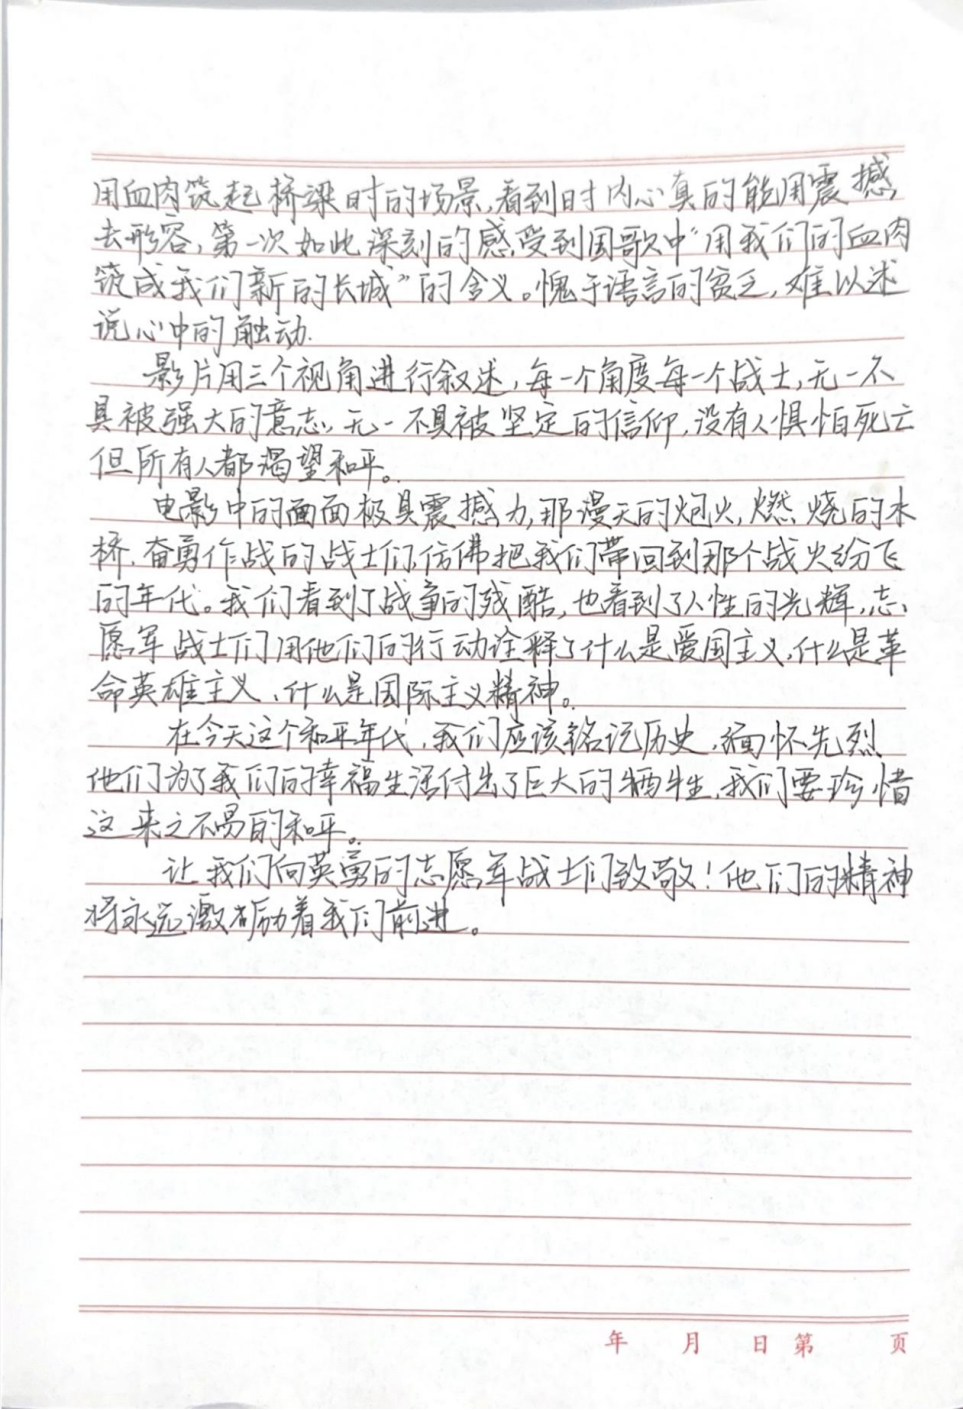 用血肉筑起桥梁时的场景,看到时内心真的能用震撼
去形容,第一次如此深刻的感受到国歌中“用我们的血肉
筑成我们新的长城”的含义。愧于语言的贫乏,难以述
说心中的触动.
影片用三个视角进行叙述,每一个角度每一个战士,无一不
具被强大的意志,无一不具被坚定的信仰,没有人惧怕死亡
但所有人都渴望和平。
电影中的画面极具震撼力,那漫天的炮火,燃烧的木
桥,奋勇作战的战士们,仿佛把我们带回到那个战火纷飞
的年代。我们看到了战争的残酷,也看到了人性的光辉,志
愿军战士们用他们的行动诠释了什么是爱国主义,什么是革
命英雄主义、什么是国际主义精神。
在今天这个和平年代,我们应该铭记历史,缅怀先烈
他们为了我们的幸福生活付出了巨大的牺牲,我们要珍惜
这来之不易的和平。
让我们向英勇的志愿军战士们致敬!他们的精神
将永远激励着我们前进。
年 月 日 第 页